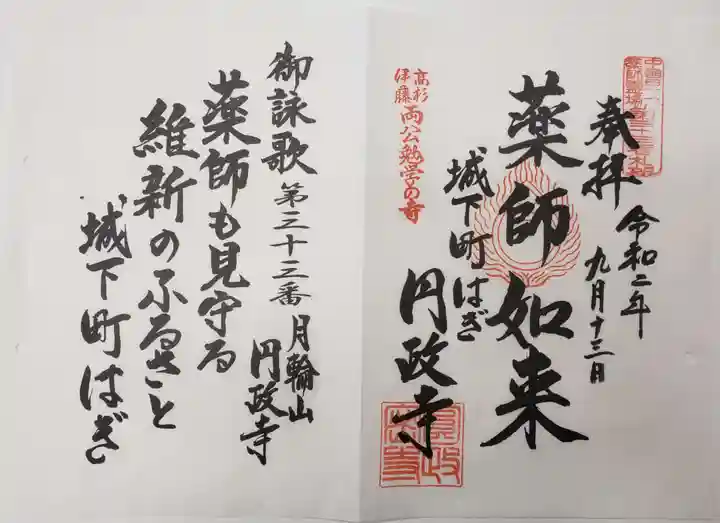 奉拝
令和二年
九月十三日
薬師如来
城下町はぎ
円政寺
高杉
伊藤
両公勉学の寺
円政
寺
御詠歌 第三十三番 月輪山
円政寺
薬師も見守る
維新のふるさと
城下町はぎ